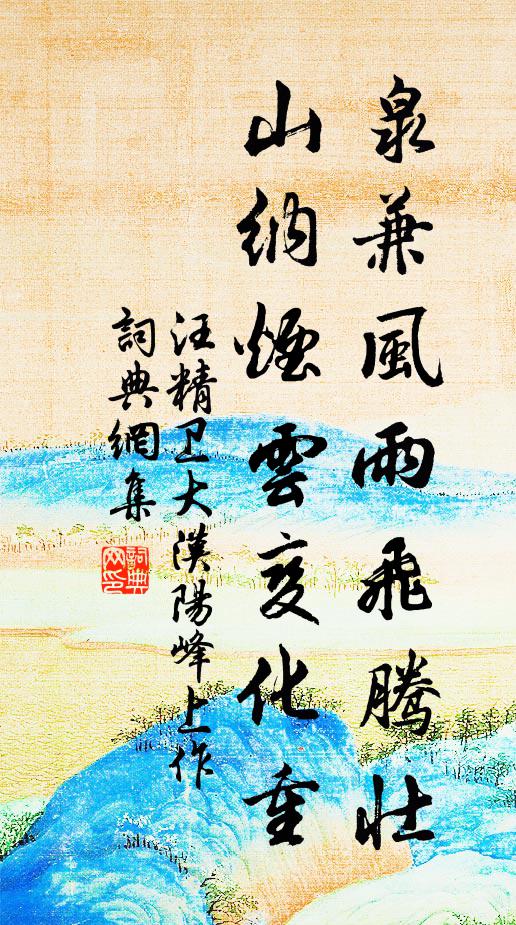 泉兼風雨飛騰壯
山納煙雲变化重
汪精卫大漢陽峰上作
詞典網集
詞典
网印